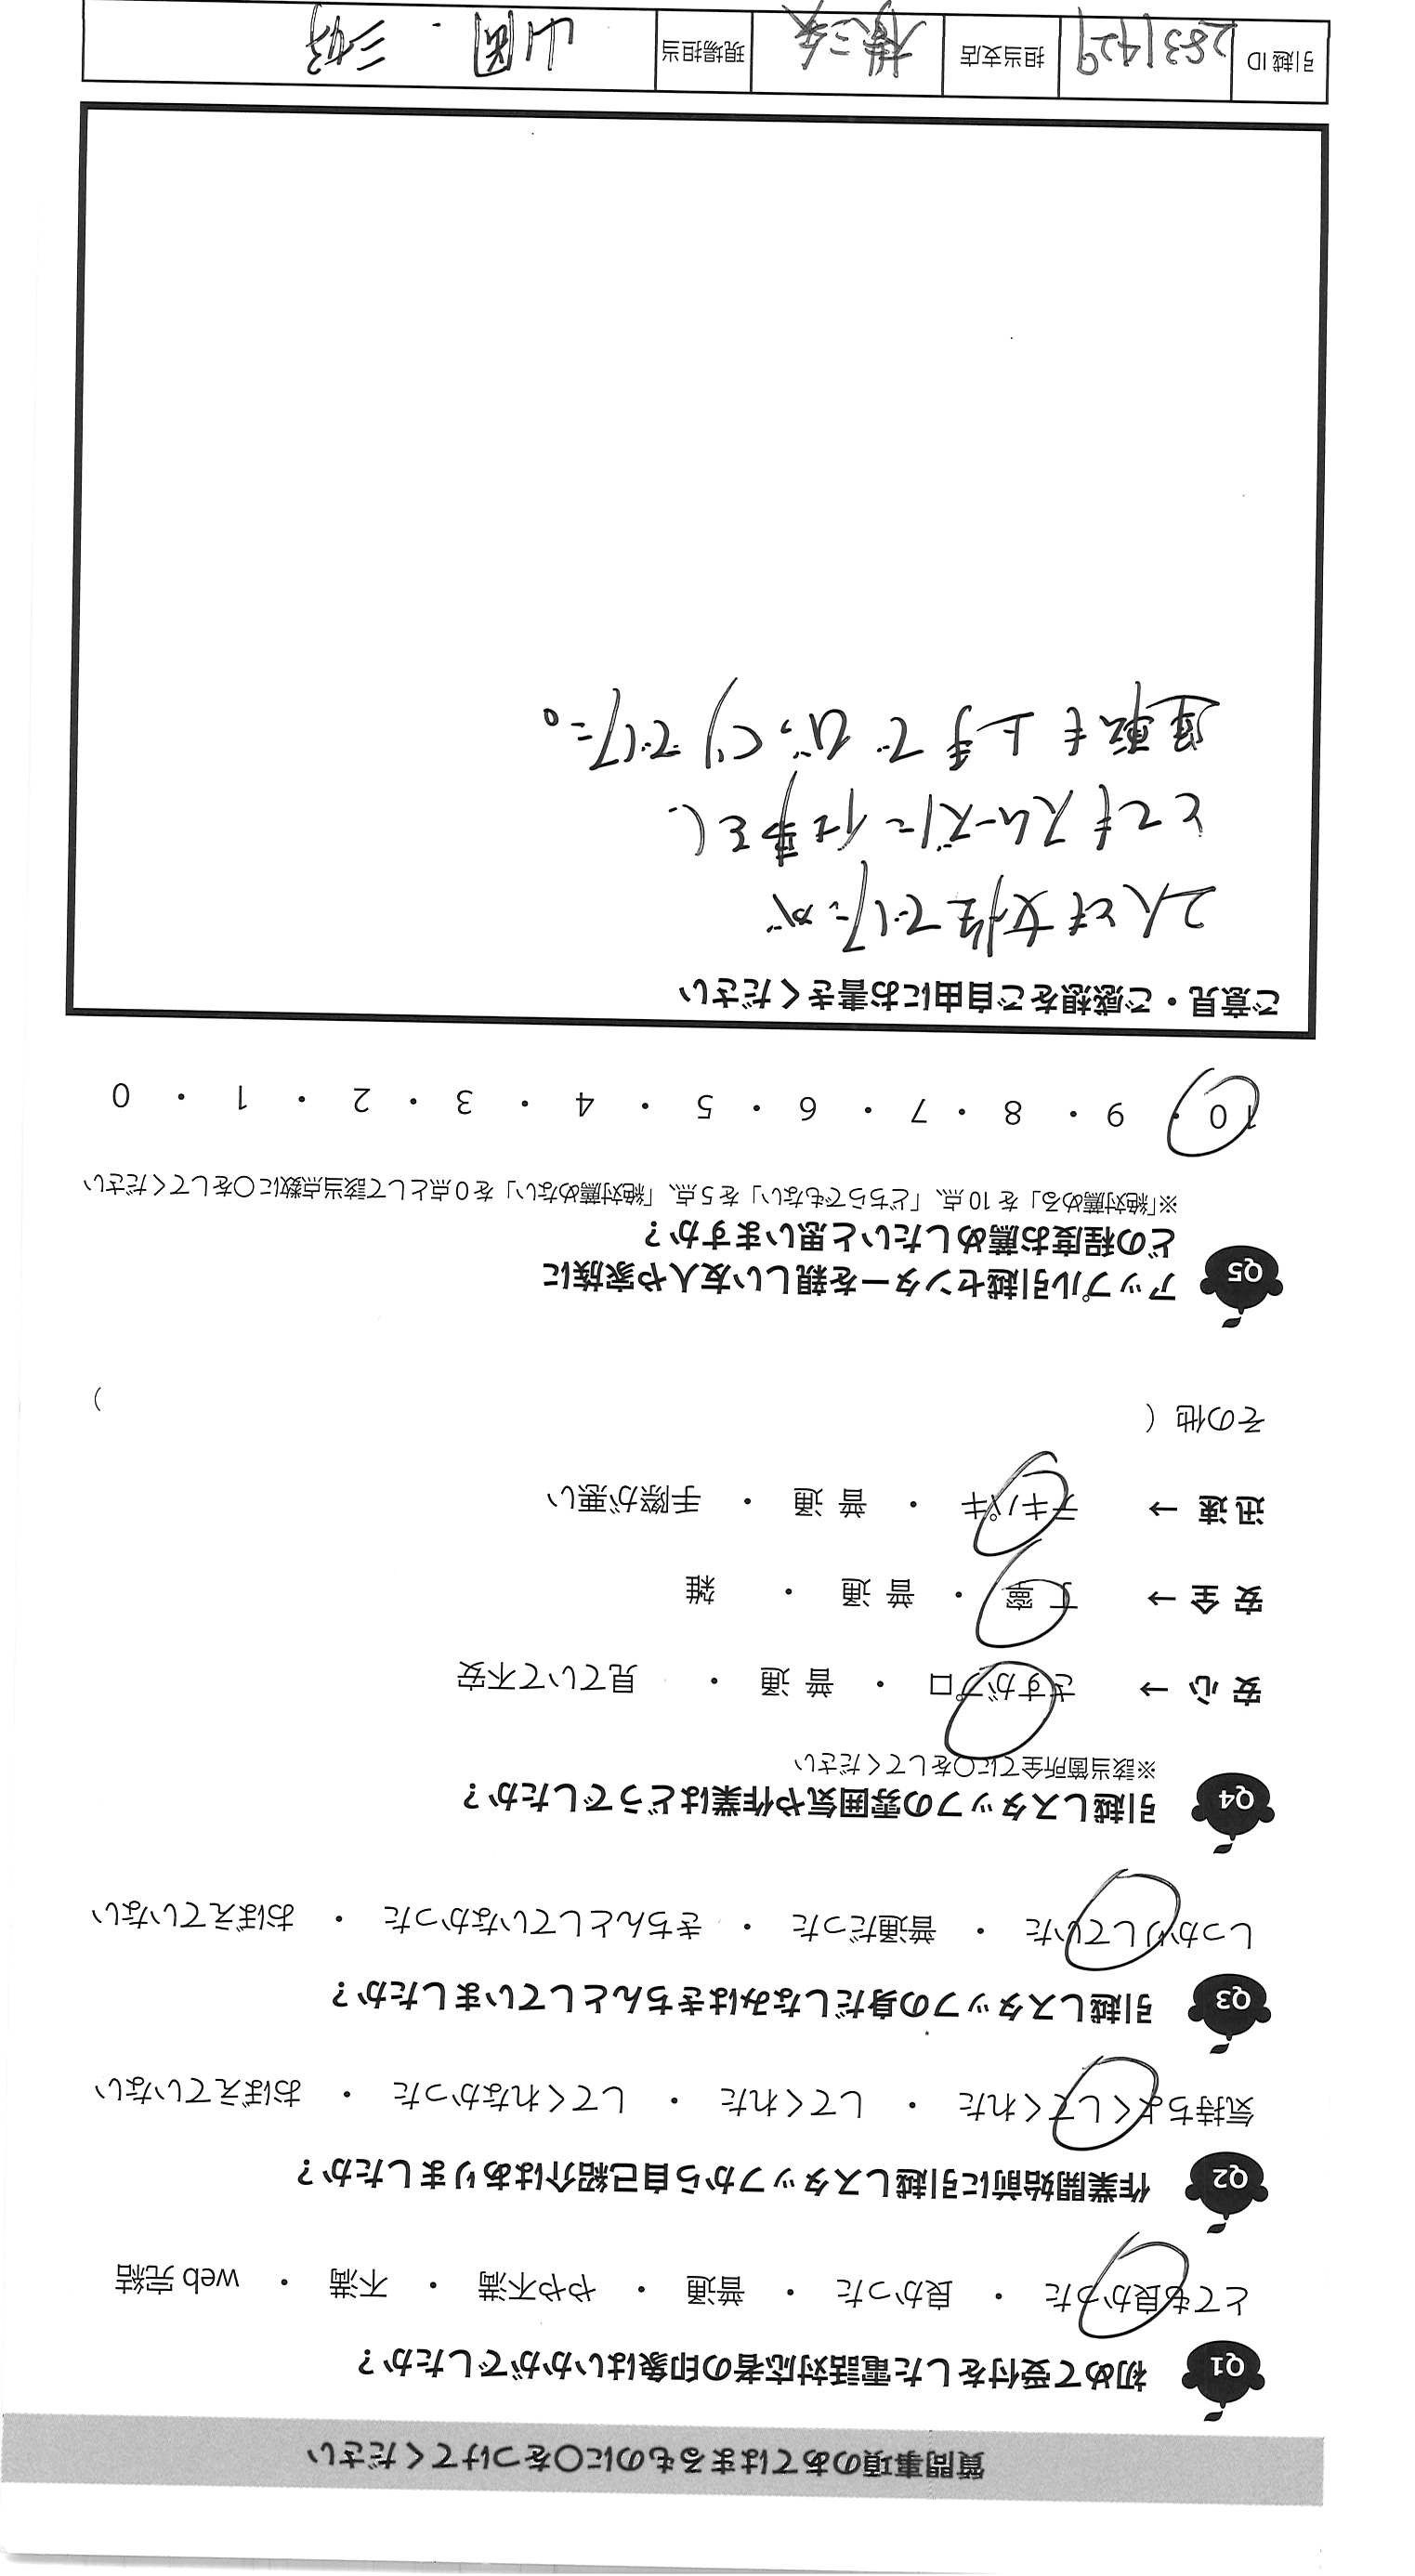 質問事項のあてはまるものに〇をつけてください
Q1 初めて受付をした電話対応者の印象はいかがでしたか？
とても良かった ・ 良かった ・ 普通 ・ やや不満 ・ 不満 ・ web 完結
Q2 作業開始前に引越しスタッフから自己紹介はありましたか？
気持ちよくしてくれた ・ してくれた ・ してくれなかった ・ おぼえていない
Q3 引越しスタッフの身だしなみはきちんとしていましたか？
しっかりしていた ・ 普通だった ・ きちんとしていなかった ・ おぼえていない
Q4 引越しスタッフの雰囲気や作業はどうでしたか？
※該当箇所全てに〇をしてください
安 心 → さすがプロ ・ 普 通 ・ 見ていて不安
安 全 → 丁 寧 ・ 普 通 ・ 雑
迅 速 → テキパキ ・ 普 通 ・ 手際が悪い
その他（ ）
Q5 アップル引越センターを親しい友人や家族に
どの程度お薦めしたいと思いますか？
※「絶対薦める」を 10 点、「どちらでもない」を 5 点、「絶対薦めない」を 0 点として該当点数に〇をしてください
10 ・ 9 ・ 8 ・ 7 ・ 6 ・ 5 ・ 4 ・ 3 ・ 2 ・ 1 ・ 0
ご意見・ご感想をご自由にお書きください
2人とも女性でしたが
とてもスムーズに仕事をし、
運転も上手でびっくりでした。
引越 ID 2831429 担当支店 現場担当 山岡 ・ 三好